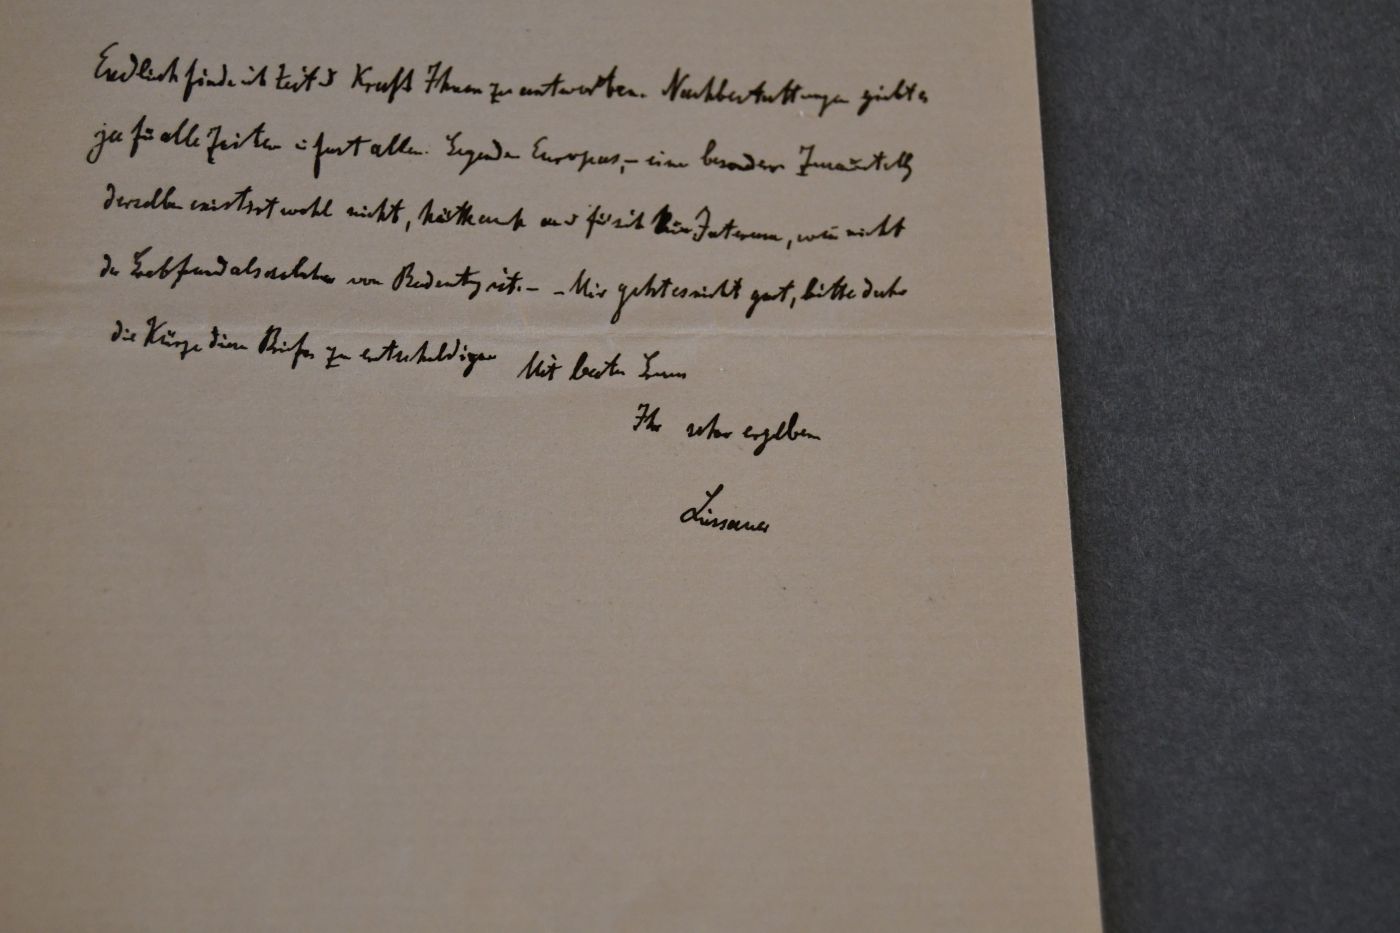 Endlich finde ich Zeit u Kraft Ihnen zu antworten. Nachbestattungen giebt es
ja für alle Zeiten u fast allen Gegenden Europas, – eine besondere Zusammenstellg
derselben existirt wohl nicht, hätte auch an u für sich kein Interesse, wenn nicht
der Grabfund als solcher von Bedeutg ist. – – Mir geht es nicht gut, bitte daher
die Kürze dieses Briefes zu entschuldigen Mit besten Gruss
Ihr sehr ergeben
Lissauer